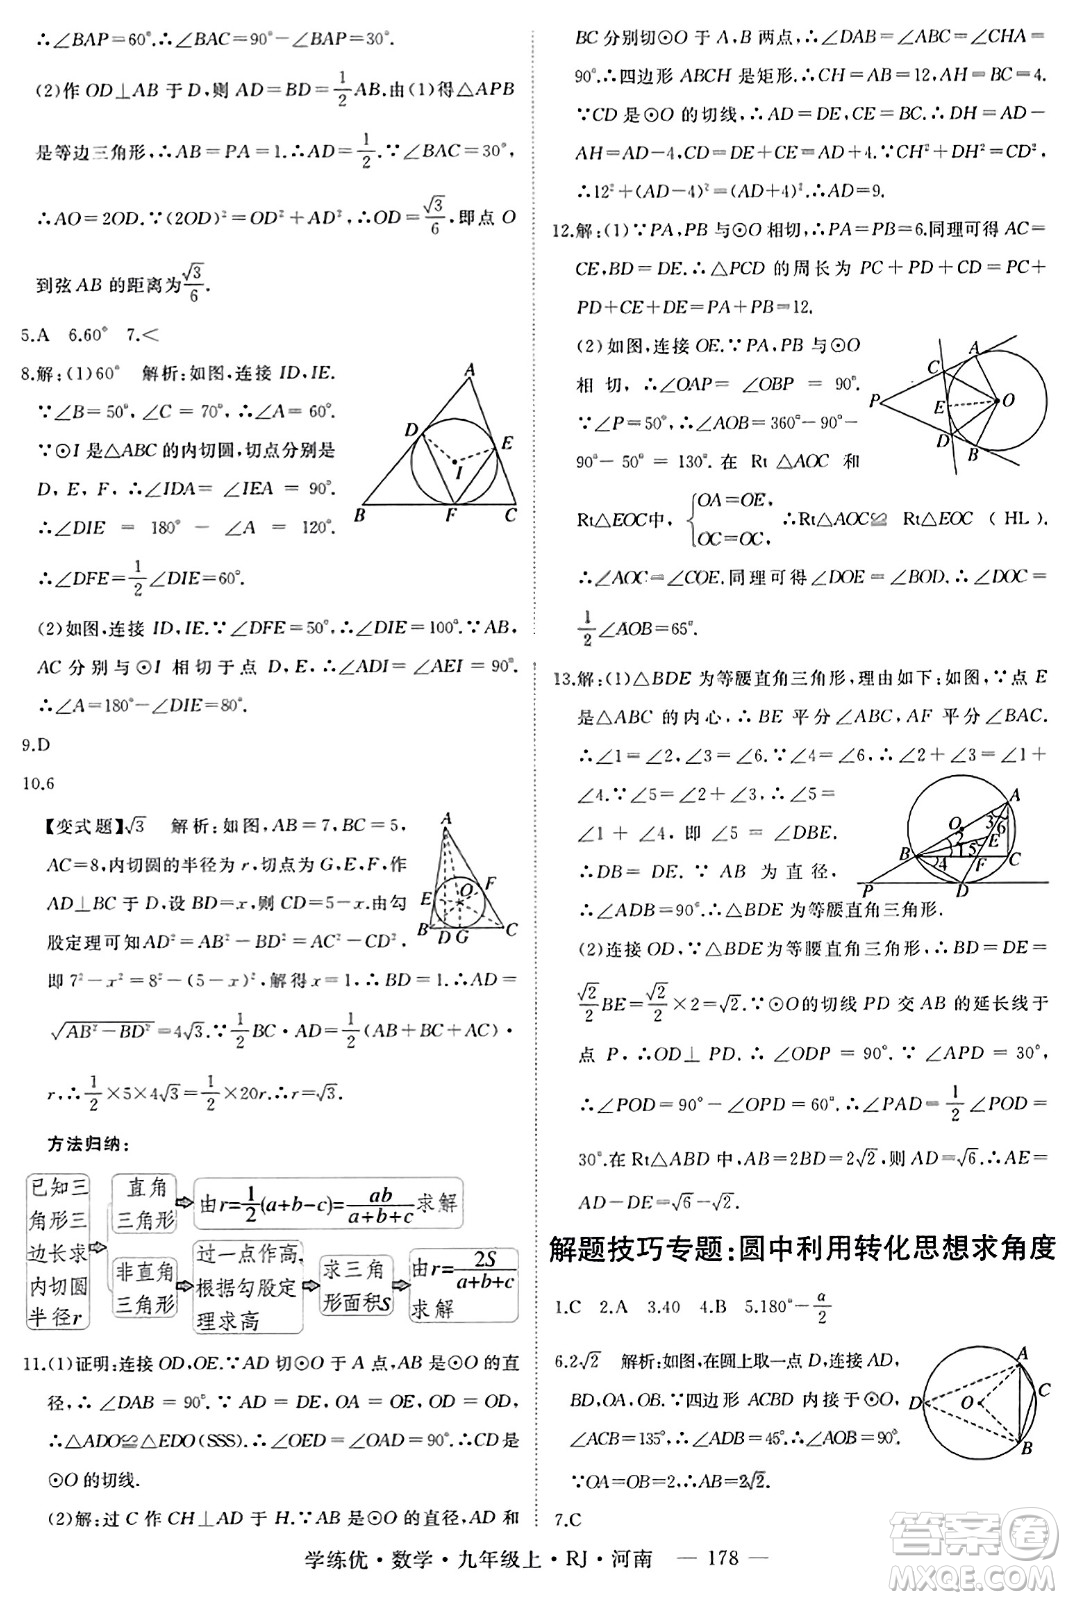 ∴∠BAP=60°.∴∠BAC=90°-∠BAP=30°.
(2)作 OD⊥AB 于 D,则 AD=BD=1/2AB.由(1)得△APB
是等边三角形,∴AB=PA=1.∴AD=1/2.∵∠BAC=30°,
∴AO=2OD.∵(2OD)²=OD²+AD²,∴OD=√3/6,即点 O
到弦 AB 的距离为√3/6.
5.A 6.60° 7.<
8.解:(1)60° 解析:如图,连接 ID,IE.
∵∠B=50°,∠C=70°,∴∠A=60°.
∵⊙I 是△ABC 的内切圆,切点分别是
D,E,F,∴∠IDA=∠IEA=90°.
∴∠DIE = 180° - ∠A = 120°.
∴∠DFE=1/2∠DIE=60°.
(2)如图,连接 ID,IE.∵∠DFE=50°,∴∠DIE=100°.∵AB,
AC 分别与⊙I 相切于点 D,E,∴∠ADI=∠AEI=90°.
∴∠A=180°-∠DIE=80°.
A
D
E
I
B
F
C
9.D
10.6
【变式题】√3 解析:如图,AB=7,BC=5,
AC=8,内切圆的半径为 r,切点为 G,E,F,
作 AD⊥BC 于 D,设 BD=x,则 CD=5-x.由勾
股定理可知AD²=AB²-BD²=AC²-CD²,
即 7²-x²=8²-(5-x)²,解得 x=1.∴BD=1.∴AD=
√AB²-BD²=4√3.∵1/2BC·AD=1/2(AB+BC+AC)·
r,∴1/2×5×4√3=1/2×20r.∴r=√3.
A
E
F
O
B
D
G
C
方法归纳:
已知三
角形三
边长求
内切圆
半径r
直角
三角形
由r=1/2(a+b-c)=ab/(a+b+c)求解
非直角
三角形
过一点作高,
根据勾股定
理求高
求三角
形面积S
由r=2S/(a+b+c)
求解
11.(1)证明:连接 OD,OE.∵AD 切⊙O 于 A 点,AB 是⊙O 的直
径,∴∠DAB=90°.∵AD=DE,OA=OE,OD=OD,
∴△ADO≌△EDO(SSS).∴∠OED=∠OAD=90°.∴CD 是
⊙O 的切线.
(2)解:过 C 作 CH⊥AD 于 H.∵AB 是⊙O 的直径,AD 和
BC 分别切⊙O 于 A,B 两点,∴∠DAB=∠ABC=∠CHA=
90°.∴四边形 ABCH 是矩形.∴CH=AB=12,AH=BC=4.
∵CD 是⊙O 的切线,∴AD=DE,CE=BC.∴DH=AD-
AH=AD-4,CD=DE+CE=AD+BC=AD+4.∵CH²+DH²=CD²,
∴12²+(AD-4)²=(AD+4)².∴AD=9.
12.解:(1)∵PA,PB 与⊙O 相切,∴PA=PB=6.同理可得 AC=
CE,BD=DE.∴△PCD 的周长为 PC+PD+CD=PC+
PD+CE+DE=PA+PB=12.
(2)如图,连接 OE.∵PA,PB 与⊙O
相切,∴∠OAP=∠OBP=90°.
∵∠P=50°,∴∠AOB=360°-90°-
90°-50°=130°.在 Rt△AOC 和
Rt△EOC中,{OA=OE, OC=OC, ∴Rt△AOC≌Rt△EOC(HL).
∴∠AOC=∠COE.同理可得∠DOE=∠BOD.∴∠DOC=
1/2∠AOB=65°.
A
C
P
E
O
D
B
13.解:(1)△BDE 为等腰直角三角形,理由如下:如图,∵点 E
是△ABC 的内心,∴BE 平分∠ABC,AF 平分∠BAC.
∴∠1=∠2,∠3=∠6.∵∠5=∠2+∠3,∴∠5=∠1+
∠6.∵∠4=∠6,∴∠5=∠1+
∠4.∵∠5=∠1+∠4,即∠5=∠DBE.
∴DB=DE.∵AB为直径,
∴∠ADB=90°.∴△BDE 为等腰直角三角形.
(2)连接 OD,∵△BDE为等腰直角三角形,∴BD=DE=
√2/2BE=√2/2×2=√2.∵⊙O的切线 PD 交 AB 的延长线于
点 P,∴OD⊥PD.∴∠ODP=90°.∵∠APD=30°,
∴∠POD=90°-∠OPD=60°.∴∠PAD=1/2∠POD=
30°.∴在Rt△ABD 中,AB=2BD=2√2,则 AD=√6.∴AE=
AD-DE=√6-√2.
A
O
3
6
2
E
B
1
5
4
F
C
P
D
解题技巧专题:圆中利用转化思想求角度
1.C 2.A 3.40 4.B 5.180°-α/2
6.2√2 解析:如图,在圆上取一点 D,连接 AD,
BD,OA,OB.∵四边形 ACBD 内接于⊙O,
∠ACB=135°,∴∠ADB=45°.∴∠AOB=90°.
∵OA=OB=2,∴AB=2√2.
7.C
A
C
D
O
B
学练优·数学·九年级上·RJ·河南 — 178 —
答案圈
MXQE.COM